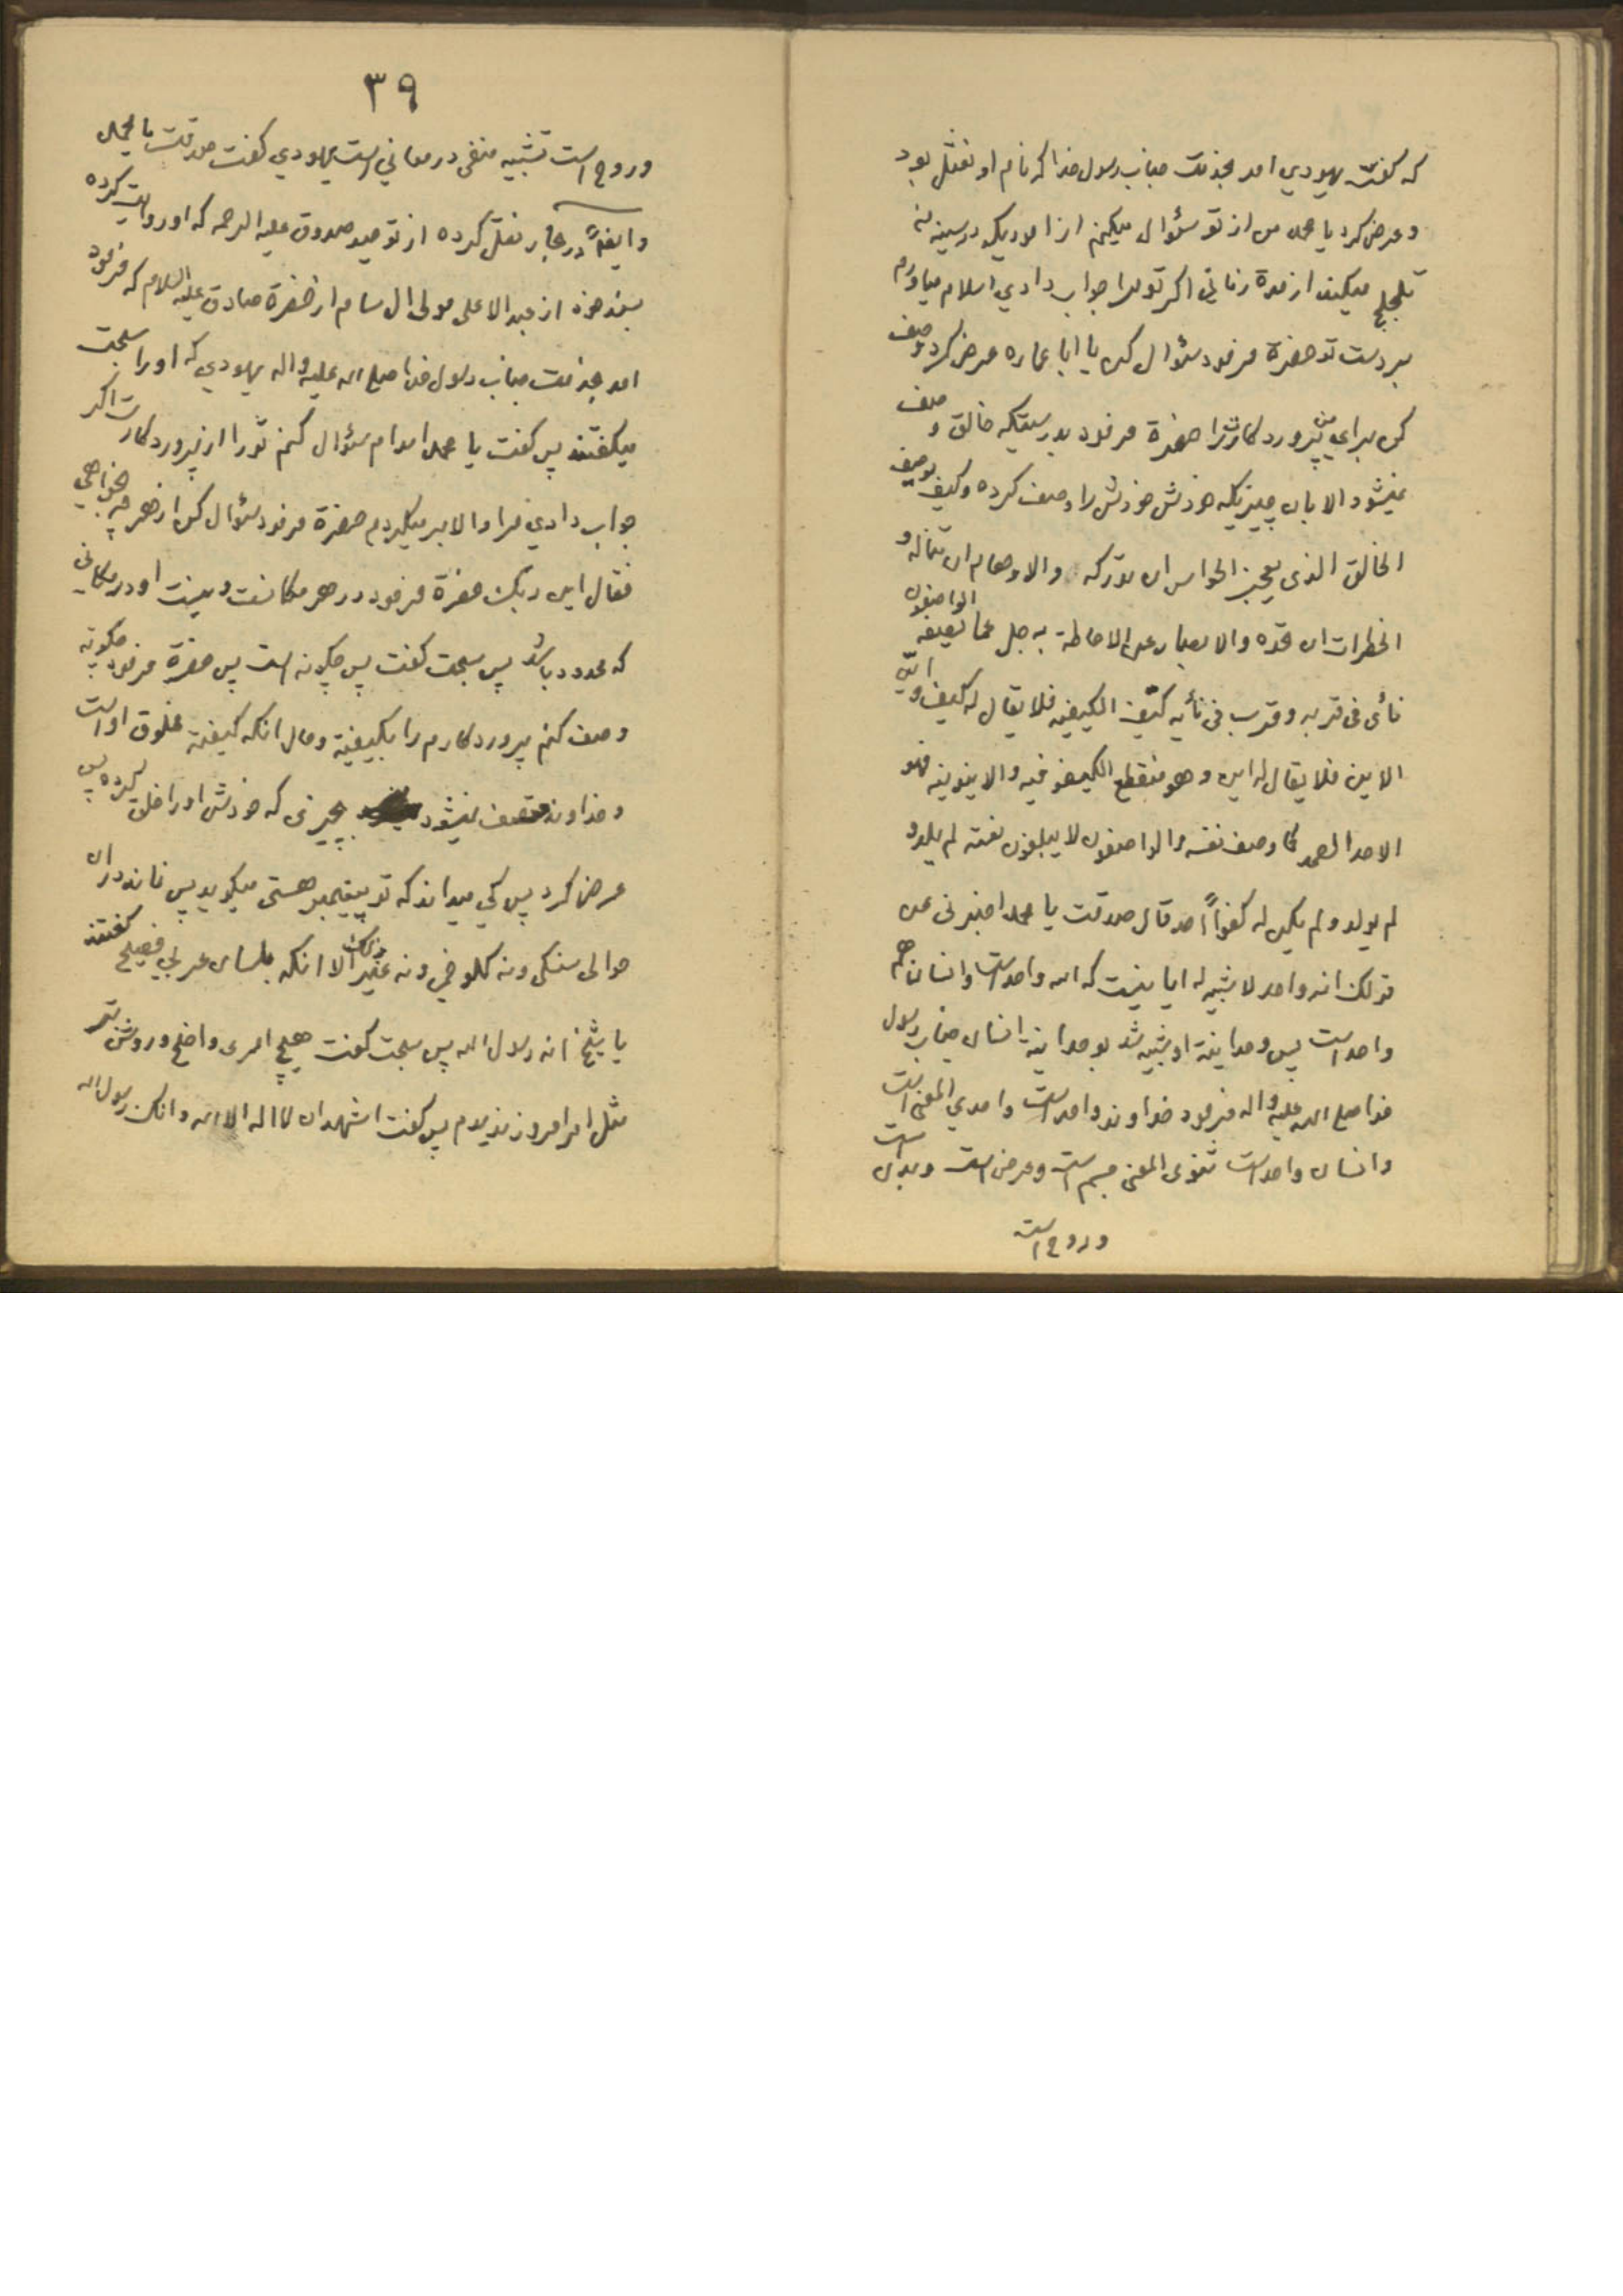 که گفت یهودي امد بخدمت جناب رسول خدا که نام او نعثل بود
و عرض کرد یا محمد من از تو سئوال میکنم از اموریکه در سینه
تلجلج میکند از مدة زمانی اکر تو مرا جواب دادي اسلام میاورم
بر دست تو حضرة فرمود سئوال کن یا ابا عماره عرض کرد وصف
کن براي من پروردکارت را حضرة فرمود بدرستیکه خالق وصف
نمیشود الا بان چیزیکه خودش خودش را وصف کرده وکیف یوصف
الخالق الذی یعجز الحواس ان تدرکه والاوهام ان تناله و
الخطرات ان تحده والابصار عن الاحاطة به جل عما یصفه الواصفون
نأی فی قربه وقرب فی نأیه کیّف الکیفیه فلا یقال له کیف و ایّن
الاین فلا یقال له این وهو منقطع الکیفوفیه والاینونیه فهو
الاحد الصمد کما وصف نفسه والواصفون لا یبلغون نعته لم یلد و
لم یولد ولم یکن له کفواً احد قال صدقت یا محمد اخبرنی عن
قولک انه واحد لا شبیه له ایا نیست که الله واحد است وانسان هم
واحد است پس وحدانیة او شبیه شد بوحدانیة انسان جناب رسول
خدا صلی الله علیه واله فرمود خداوند واحد است واحدي المعنی است
وانسان واحد است ثنوی المعنی جسم است وعرض است وبدن است
وروح است
٣٩
وروح است تشبیه منفی در معاني است یهودي کفت صدقت یا محمد
وایضاً در بحار نقل کرده از توحید صدوق علیه الرحمه که او روایت کرده
بسند خود از عبد الاعلی مولی ال سام از حضرة صادق علیه السلام که فرمود
امد بخدمت جناب رسول خدا صلی الله علیه واله یهودي که او را سبحت
میکفتند پس کفت یا محمد امدام سئوال کنم تو را از پروردکارت اکر
جواب دادي مرا والا بر میکردم حضرة فرمود سئوال کن از هر چه بخواهي
فقال این ربک حضرة فرمود در هر مکانست و نیست او در مکانی
که محدود باشد پس سبحت کفت پس چکونه است پس حضرة فرمود چکونه
وصف کنم پروردکارم را بکیفیة وحال انکه کیفیة مخلوق او است
وخداوند متصف نمیشود بچیزی که خودش او را خلق کرده پس
عرض کرد پس کي میداند که تو پیغمبر هستی میکوید پس نماند در ان
حوالی سنکی ونه کلوخی ونه غیر ذلک الا انکه بلسان عربي فصیح کفتند
یا شیخ انه رسول الله پس سبحت کفت هیچ امری واضح وروشن تر
مثل امر امروز ندیدم پس کفت اشهد ان لا اله الا الله وانک رسول الله